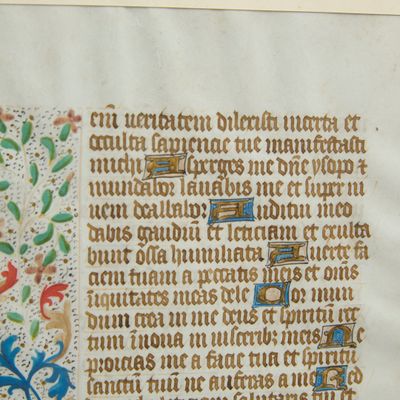 em veritatem dilexisti incerta et
occulta sapiencie tue manifestasti
michi Asperges me dñe ysopo ⁊
mundabor lavabis me et super ni
vem dealbabor Auditui meo
dabis gaudium et leticiam et exulta
bunt ossa humiliata Averte fa
ciem tuam a peccatis meis et om̄s
iniquitates meas dele Cor mun
dum crea in me deus et spiritū rec
tum īnova in viscerib; meis Ne
proicias me a facie tua et spiritū
sanctū tuū ne auferas a me Red
salutaris tui et